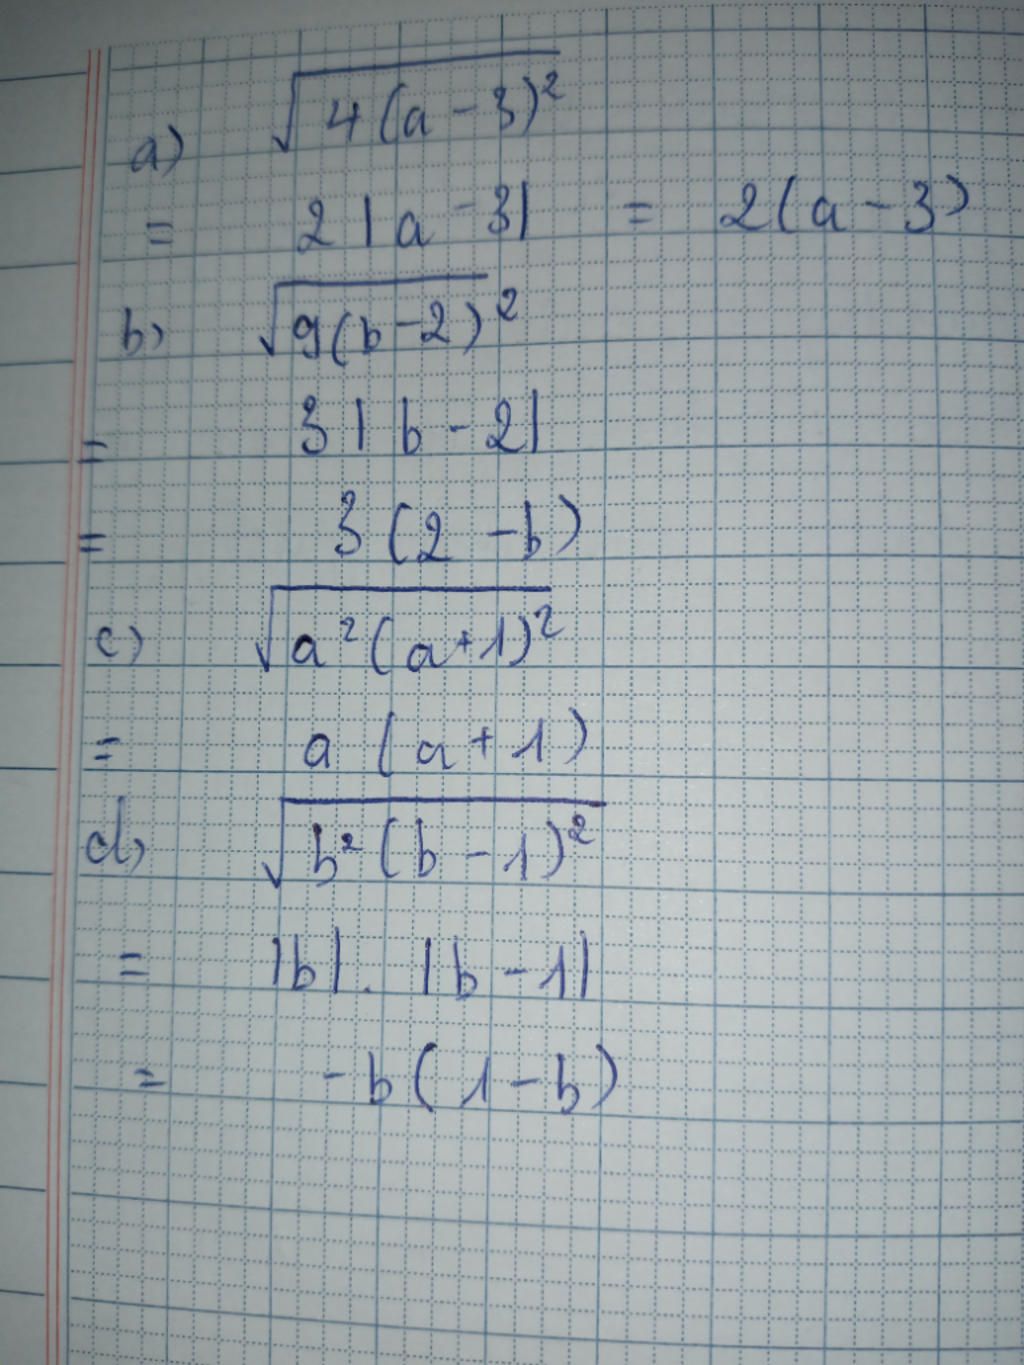 a) √4(a-3)²
= 2|a-3| = 2(a-3)
b) √9(b-2)²
= 3|b-2|
= 3(2-b)
c) √a²(a+1)²
= a(a+1)
d) √b²(b-1)²
= |b|.|b-1|
= -b(1-b)